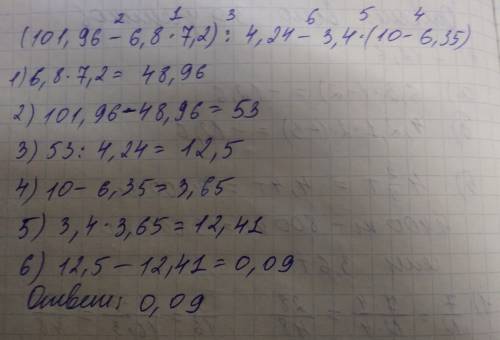 2 1 3 6 5 4
(101,96 - 6,8 · 7,2) : 4,24 - 3,4 · (10 - 6,35)
1) 6,8 · 7,2 = 48,96
2) 101,96 - 48,96 = 53
3) 53 : 4,24 = 12,5
4) 10 - 6,35 = 3,65
5) 3,4 · 3,65 = 12,41
6) 12,5 - 12,41 = 0,09
Ответ: 0,09